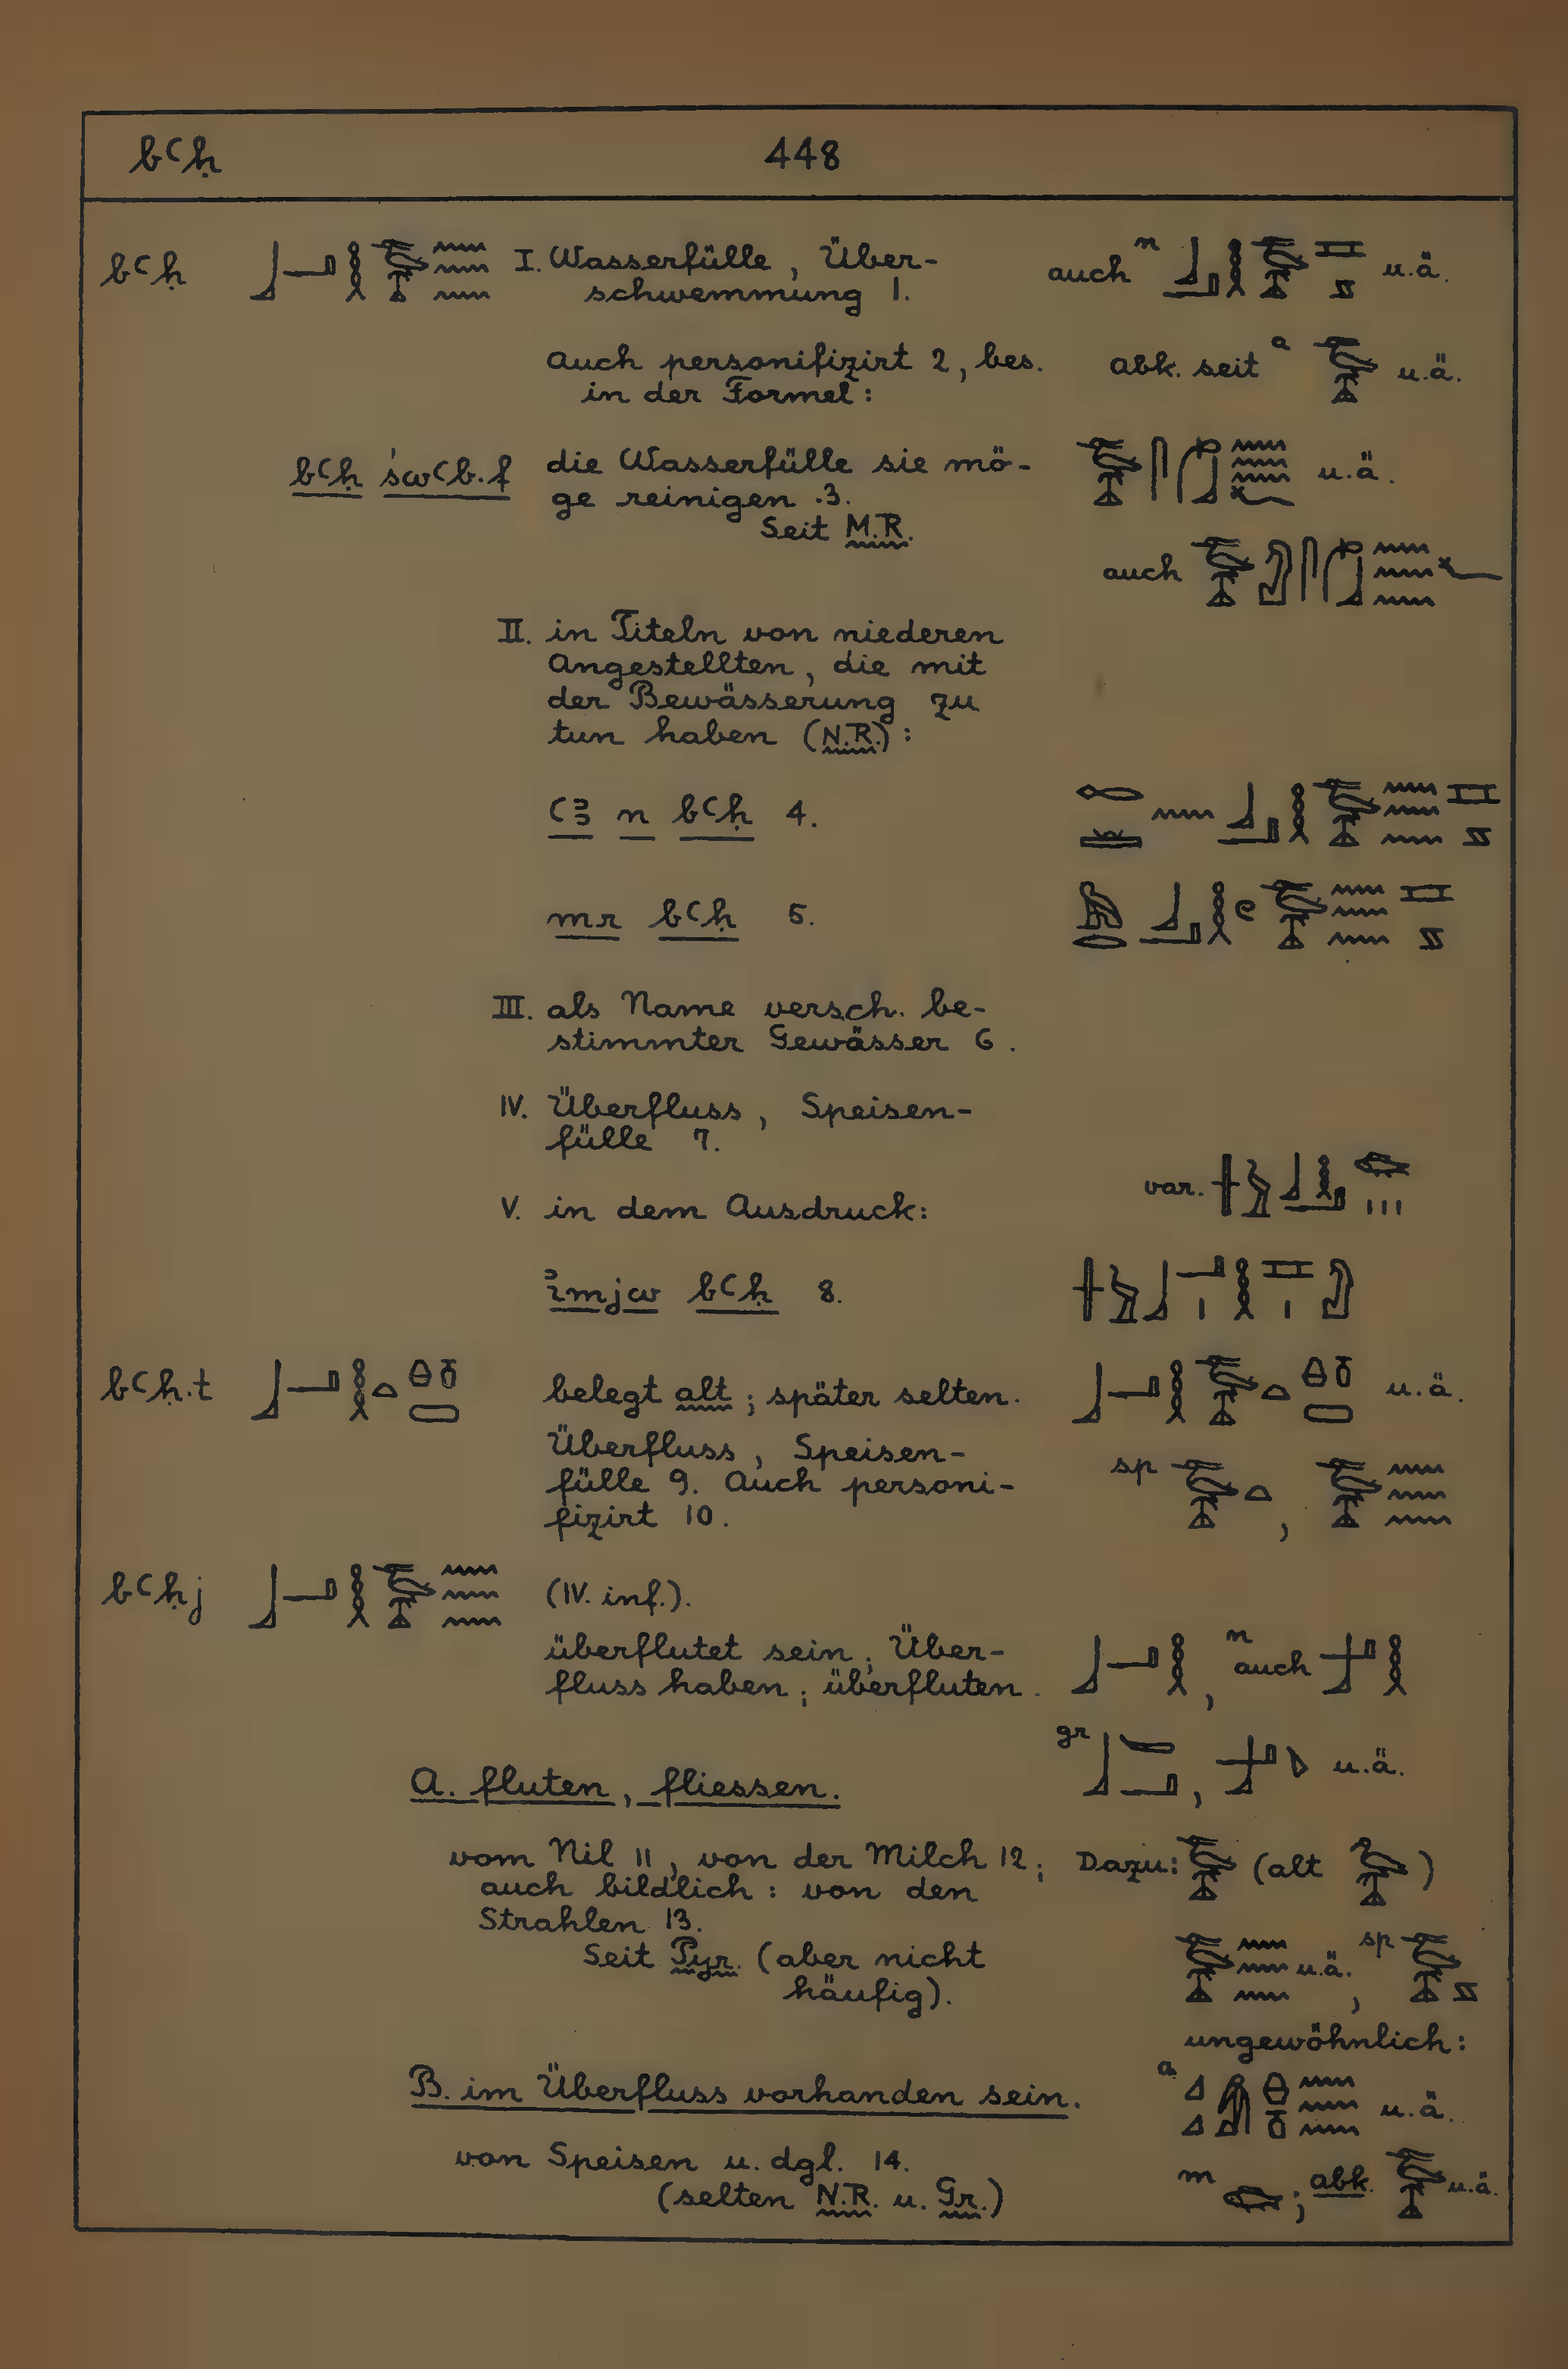 bꜥḥ 448
bꜥḥ I. Wasserfülle, Über- auch n u.ä.
schwemmung 1.
auch personifizirt 2, bes. abk. seit a u.ä.
in der Formel:
bꜥḥ śwꜥb.f die Wasserfülle sie mö- u.ä.
ge reinigen 3.
Seit M.R.
auch
II. in Titeln von niederen
Angestellten, die mit
der Bewässerung zu
tun haben (N.R.):
ꜥꜣ n bꜥḥ 4.
mr bꜥḥ 5.
III. als Name versch. be-
stimmter Gewässer 6.
IV. Überfluss, Speisen-
fülle 7.
var.
V. in dem Ausdruck:
ỉmjw bꜥḥ 8.
bꜥḥ.t belegt alt; später selten. u.ä.
Überfluss, Speisen-
fülle 9. Auch personi- sp
fizirt 10.
bꜥḥj (IV. inf.).
überflutet sein; Über- n auch
fluss haben; überfluten.
gr u.ä.
A. fluten, fliessen.
vom Nil 11, von der Milch 12; Dazu: (alt )
auch bildlich: von den
Strahlen 13.
Seit Pyr. (aber nicht u.ä., sp
häufig).
ungewöhnlich:
B. im Überfluss vorhanden sein. a u.ä.
von Speisen u. dgl. 14.
(selten N.R. u. Gr.) m ; abk. u.ä.